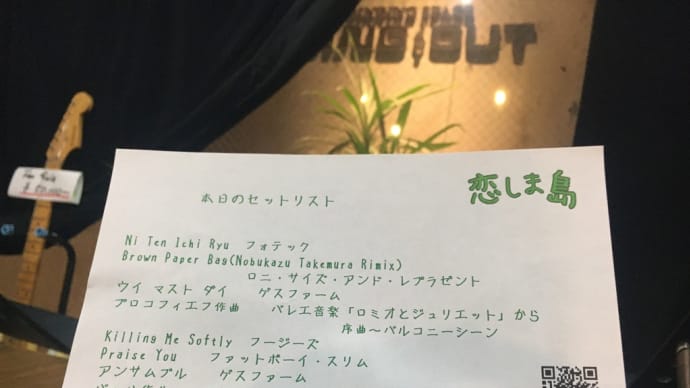 NG OUT
恋しま島
本日のセットリスト
Ni Ten Ichi Ryu フォテック
Brown Paper Bag(Nobukazu Takemura Rimix)
ロニ・サイズ・アンド・レプラゼント
ウイ マスト ダイ ゲスファーム
プロコフィエフ作曲 バレエ音楽「ロミオとジュリエット」から
序曲～バルコニーシーン
Killing Me Softly フージーズ
Praise You ファットボーイ・スリム
アンサムブル ゲスファーム